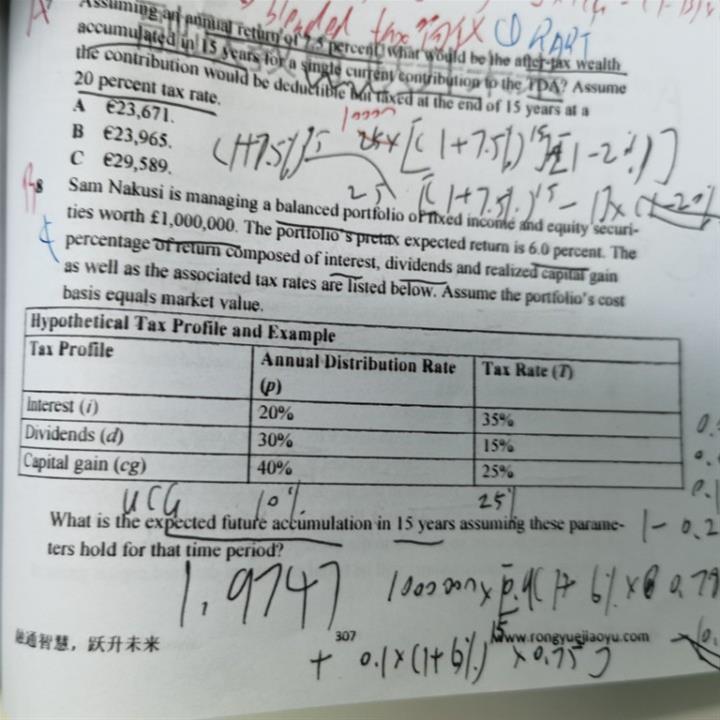 blended tax
Assuming an annual return of 7.5 percent, what would be the after-tax wealth
accumulated in 15 years for a single current contribution to the TDA? Assume
the contribution would be deductible but taxed at the end of 15 years at a
20 percent tax rate.
A €23,671.
B €23,965.
C €29,589.
(1+7.5%)15
[(1+7.5%)15
25 [(1+7.5%)15 - 1]x
8 Sam Nakusi is managing a balanced portfolio of fixed income and equity securi-
ties worth £1,000,000. The portfolio's pretax expected return is 6.0 percent. The
percentage of return composed of interest, dividends and realized capital gain
as well as the associated tax rates are listed below. Assume the portfolio's cost
basis equals market value.
Hypothetical Tax Profile and Example
Tax Profile Annual Distribution Rate (p) Tax Rate (T)
Interest (i) 20% 35%
Dividends (d) 30% 15%
Capital gain (cg) 40% 25%
UCG 10% 25%
What is the expected future accumulation in 15 years assuming these parame-
ters hold for that time period?
1.9747
融通智慧，跃升未来 307 www.rongyuejiaoyu.com
+ 0.1x(1+6%)15 x0.75